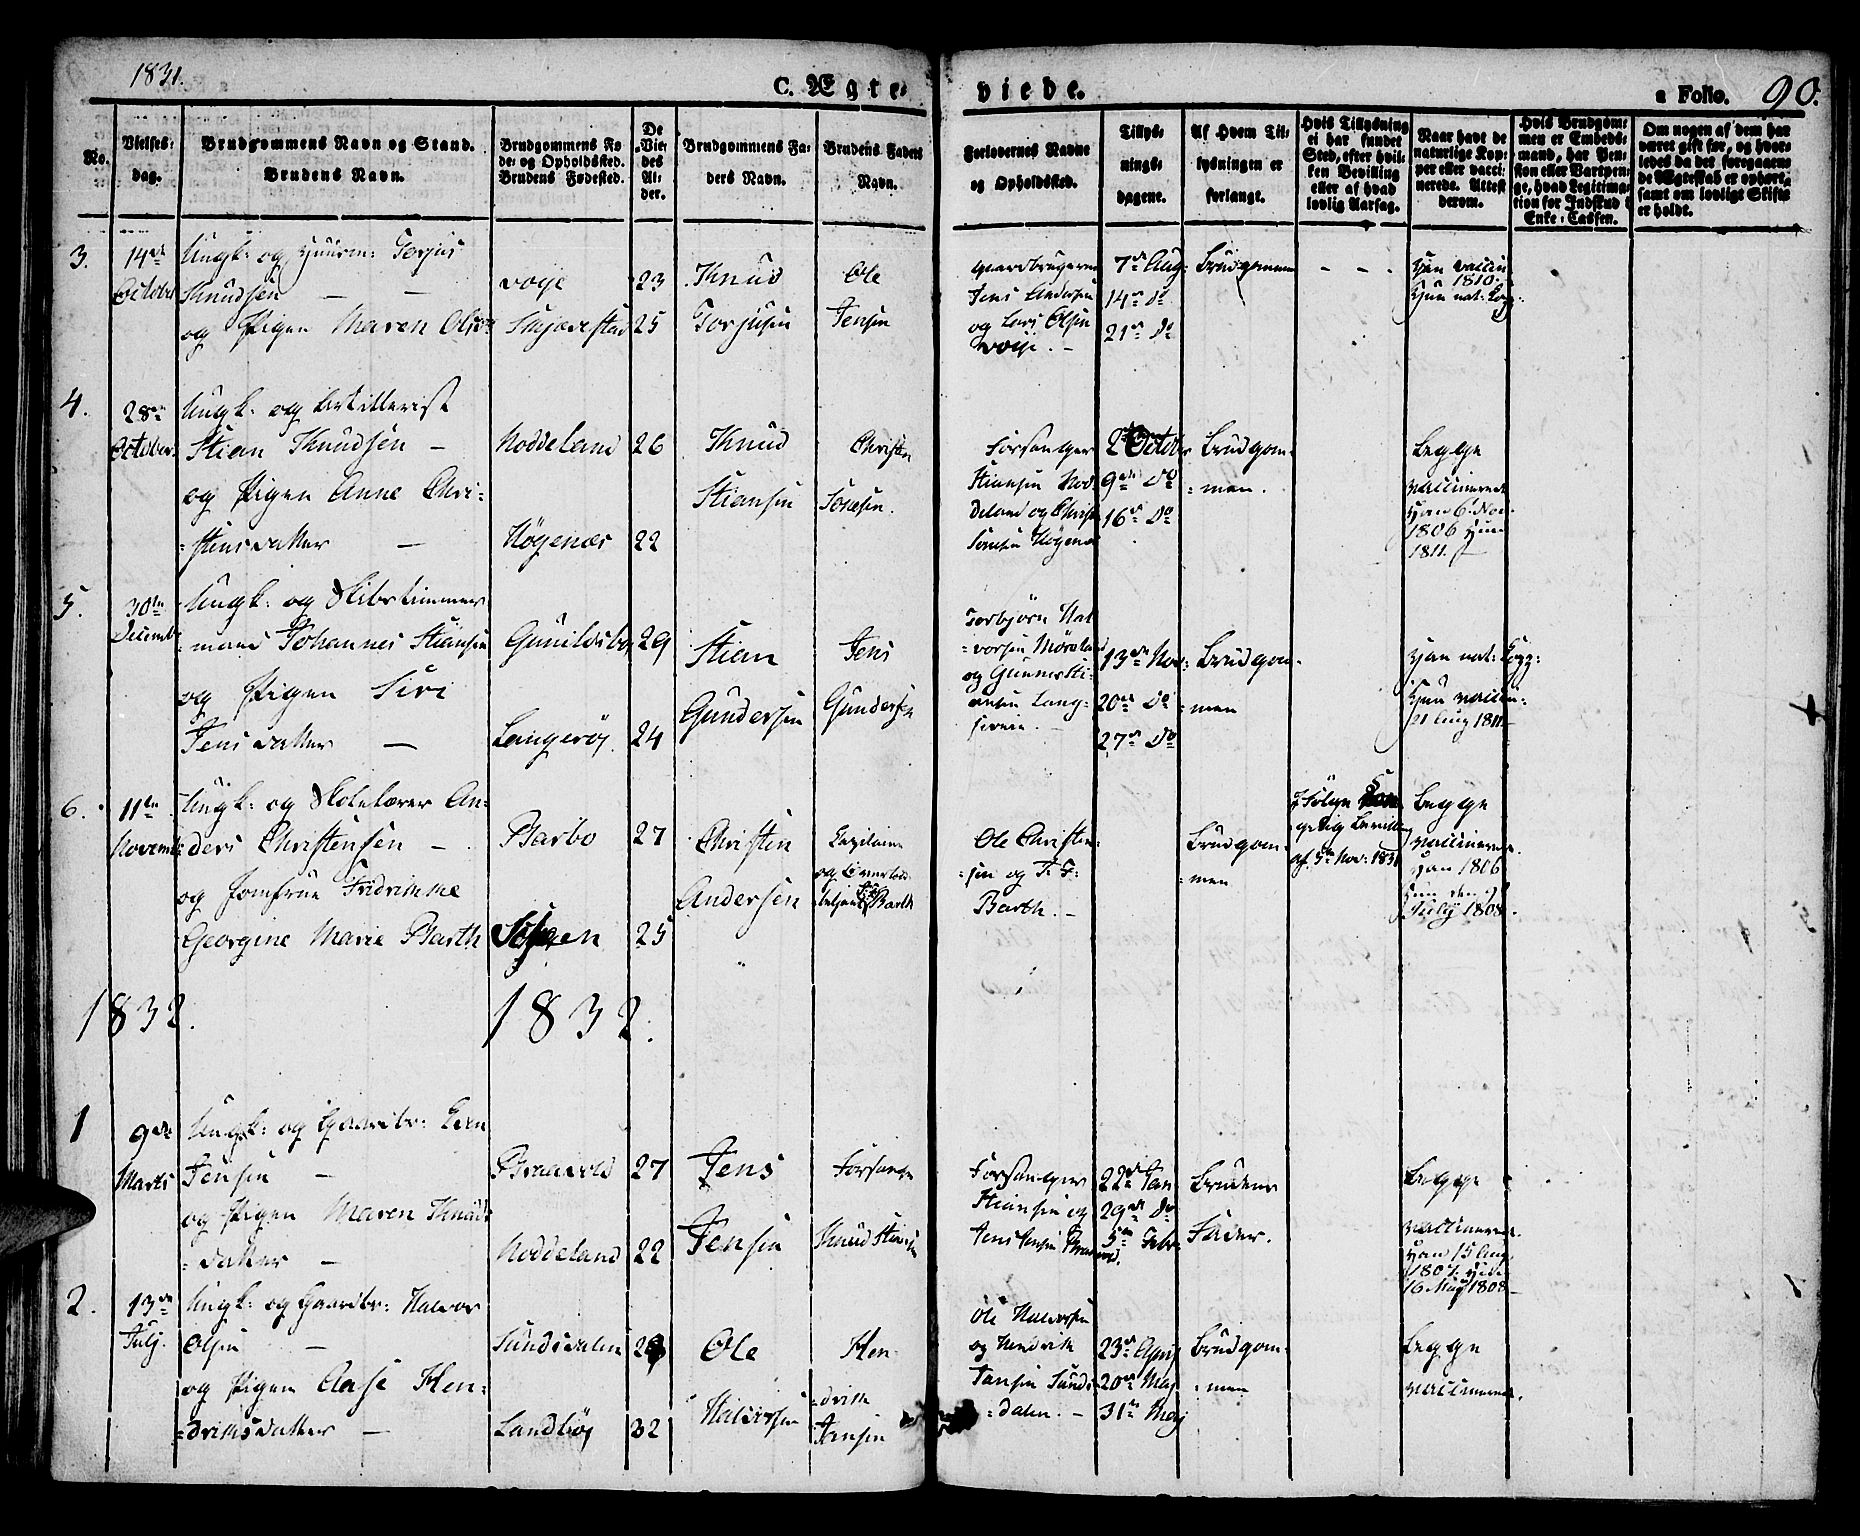 1831.
C. Ægte-
viede.
a Folio. 90.
No.
Vielses-
dag.
Brudgommens Navn og Stand.
Brudens Navn.
Brudgommens Fø-
de- og Opholdssted.
Brudens Fødested.
De
Vie-
des
Al-
der.
Brudgommens Fa-
ders Navn.
Brudens Faders
Navn.
Forlovernes Navne
og Opholdssted.
Tillys-
nings-
dagene.
Af Hvem Til-
lysningen er
forlangt.
Hvis Tillysning
ei har fundet
Sted, efter hvil-
ken Bevilling
eller af hvad
lovlig Aarsag.
Naar havt de
naturlige Kop-
per eller vacci-
nerede. Attest
derom.
Hvis Brudgom-
men er Embeds-
mand, har Pen-
sion eller Vartpen-
ge, hvad Legitima-
tion for Indskud i
Enke-Cassen.
Om nogen af dem har
været gift før, og hvor-
ledes da det foregaaen-
de Ægteskab er ophørt,
samt om lovligt Skifte
er holdt.
3.
14de
October
Ungk: og Huusm: Terjus
Knudsen — —
og Pigen Maren Olsd
Voje
Skjævestad
23
25
Knud
Torjusen
Ole
Jensen
Gaardbrugerne
Jens Andersen
og Lars Olsen
Voje. —
7de Aug:
14de Do
21de Do
Brudgomen
- - -
Han vaccin
1810.
Hun nat: Kop:
4.
28de
October.
Ungk: og Artillerist
Stian Knudsen —
og Pigen Anne Chri-
=stensdatter —
Noddeland
Høgenæs
26
22
Knud
Stiansen
Christen
Sørensen.
Forsanger
Stiansen Nod-
deland og Christ
Sørensen Høgenæs
2 October
9de Do
16de Do
Brudgom-
=men.
Begge
vaccinerede
Han 6 Nov.
1806 Hun
1811. —
5.
30te
Decemb
Ungk: og Skibstimmer
=mand Johannes Stiansen
og Pigen Siri
Jensdatter —
Gunildsbo
Langerøj.
29
24
Stian
Gundersen
Jens
Gundersen
Torbjørn Hal
=vorsen Møreland
og Gunner Sti-
ansen Lang-
13de Nov:
20de Do
27de Do
Brudgom-
=men
Han nat: Kopp:
Hun vaccin:
21 Aug 1811—
6.
11te
Novemb
Ungk: og Skolelærer An-
ders Christensen —
og Jomfrue Fridrikke
Georgine Marie Barth
Barbo
27
25
Christen
Andersen
Barth
Ole Christen-
=sen og
Barth. —
Brudgom-
=men
Ifølge Kon
gelig Bevill
af 5te Nov: 1831
Begge
vaccinerede.
Han 1806
Hun den 9
July 1808.
1832.
1832.
1
9de
Marts
Ungk: og Gaardbr: Even
Jensen —
og Pigen Maren Knuds
=datter —
Braavold
Noddeland
27
22
Jens
Jensen
Forsanger
Knud Stiansen
Forsanger
Stiansen og
Jens Jensen Braavold.
22de Jan
29de Do
5te Febr:
Brudens
Fader.
Begge
vaccinerede.
Han 15 Aug
1807. Hun
16 May 1808—
2.
13de
Julj.
Ungk: og Gaardbr: Halvor
Olsen —
og Pigen Aase Hen-
=driksdatter —
Sundsdalen
Sandbøj
32
Ole
Halvorsen
Hen-
=drik
Jansen
Ole Halvorsen
og Hendrik
Jansen Sunds-
=dalen. —
23de April
20de Maj
31te Maj
Brudgom-
=men
Begge
vaccinerede.